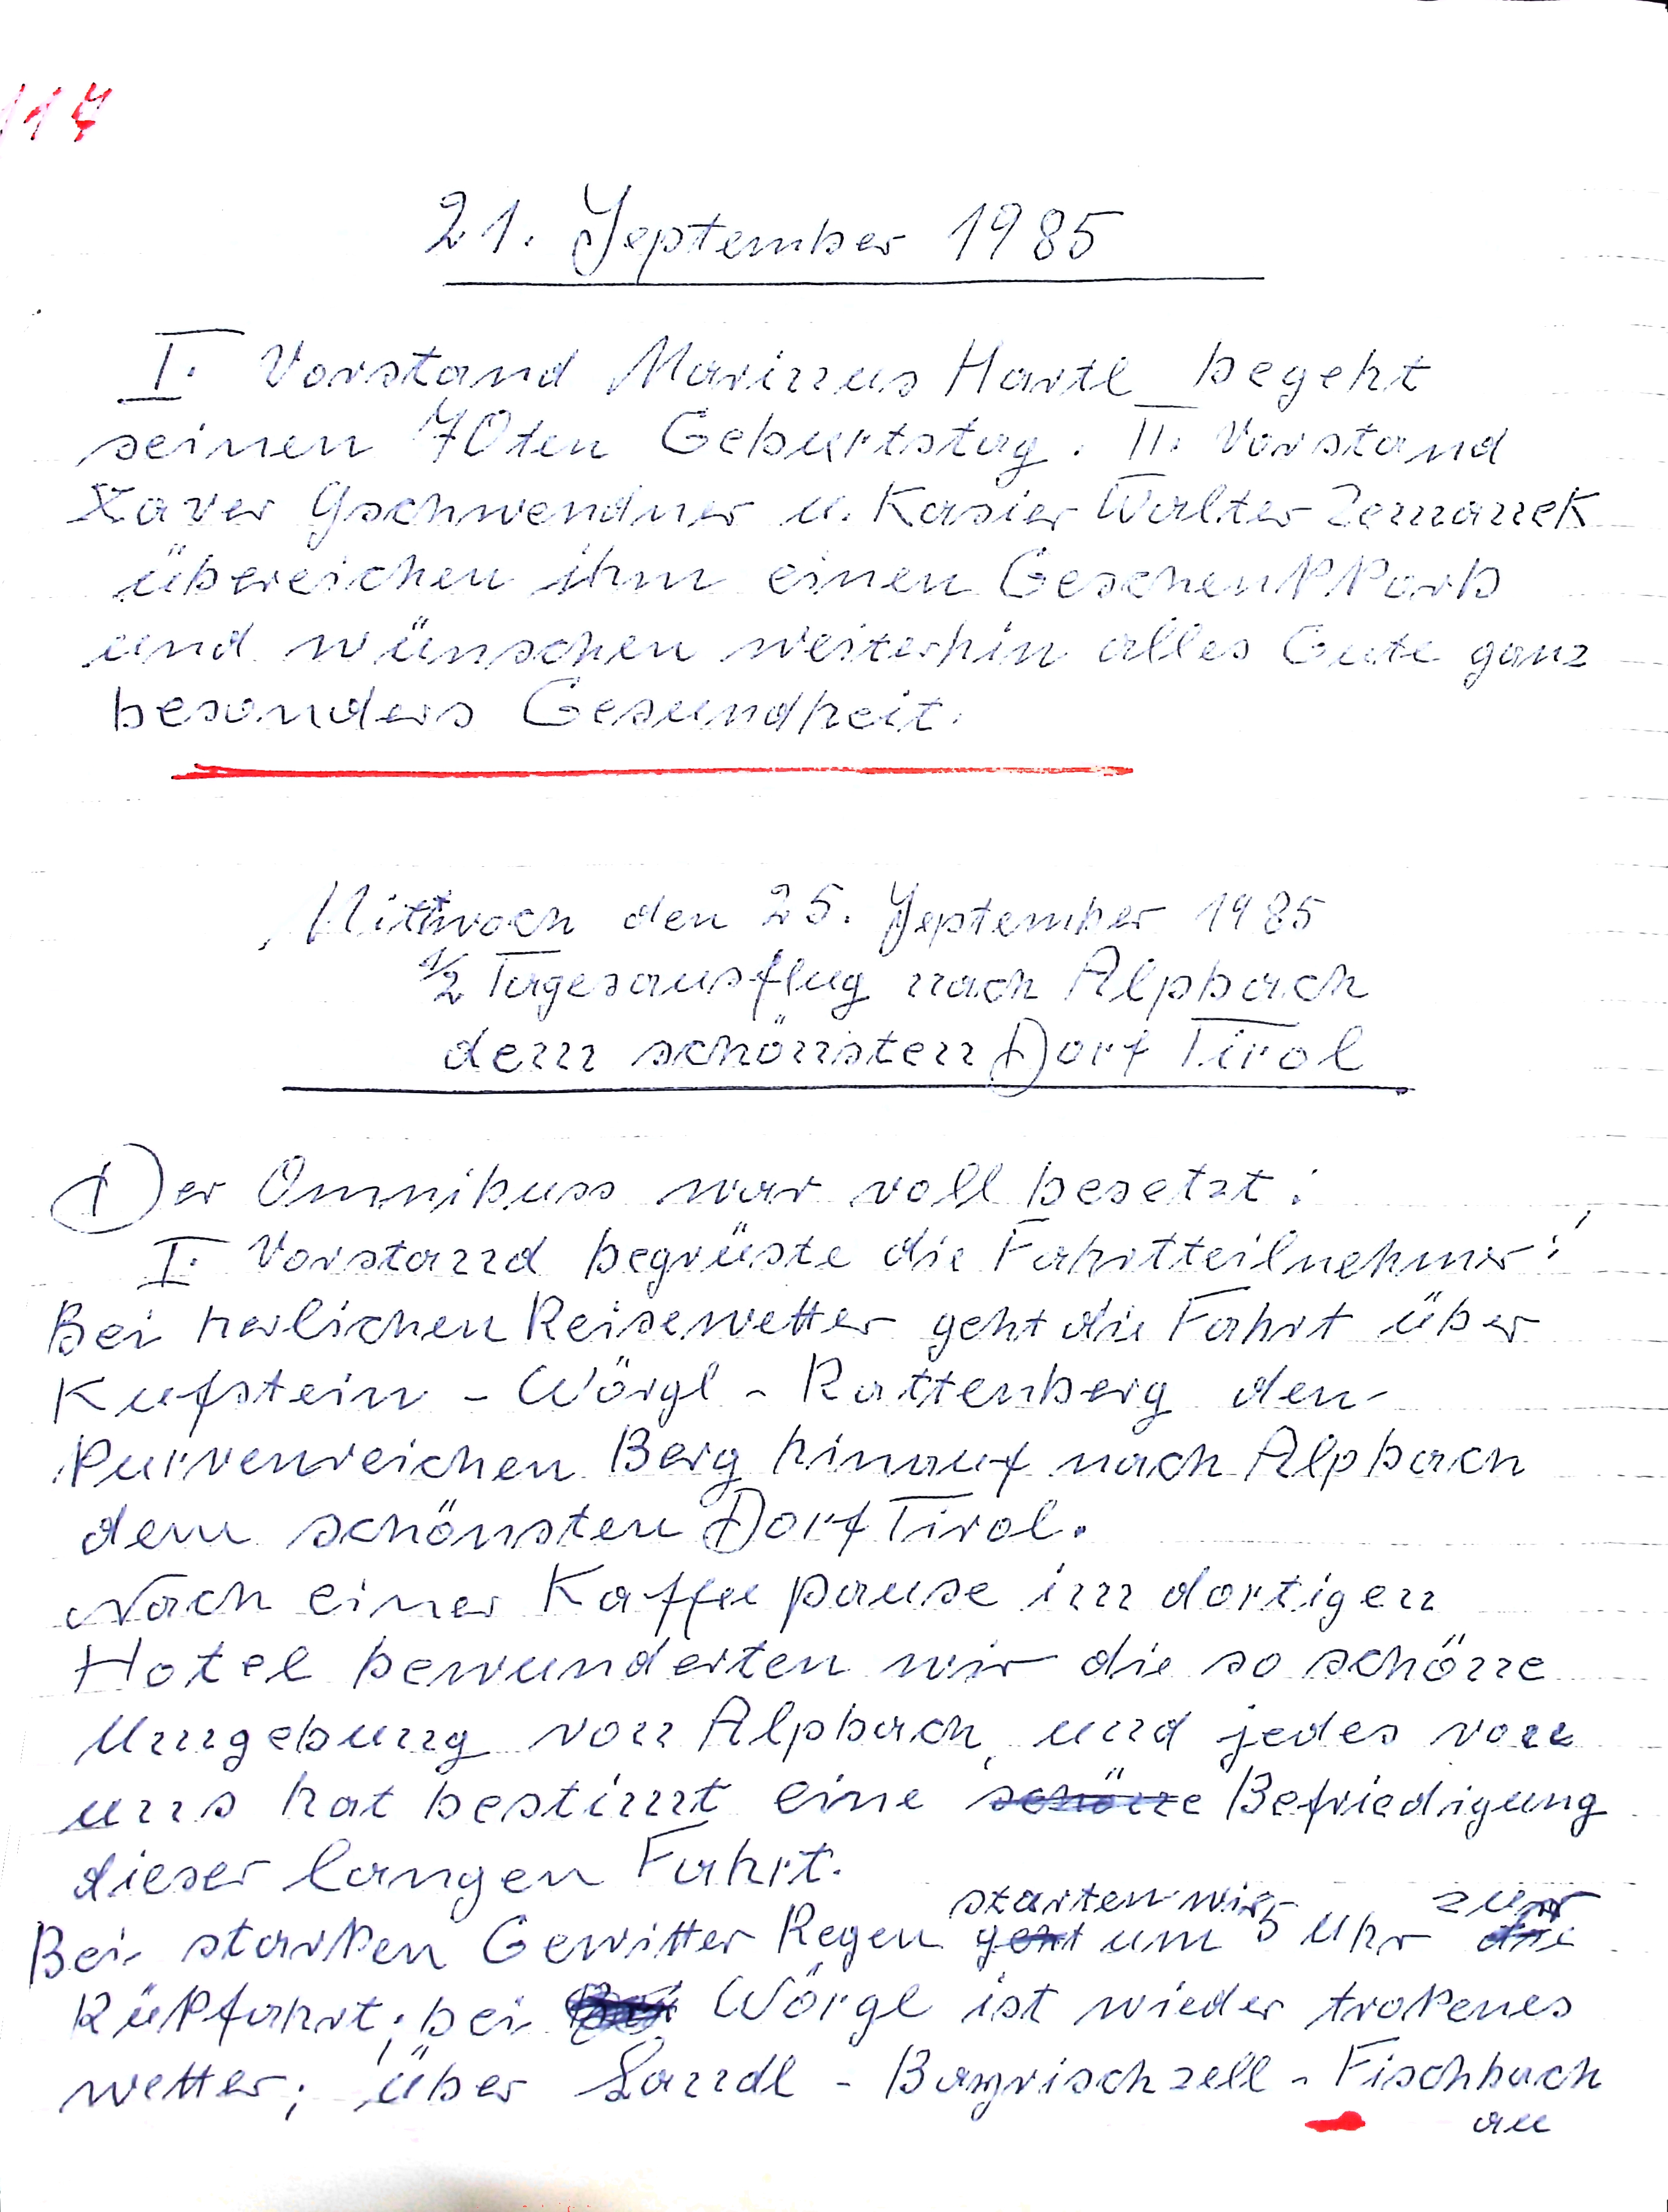 117
21. September 1985
I. Vorstand Marinus Hartl begeht
seinen 70ten Geburtstag. II. Vorstand
Xaver Gschwendner u. Kasier Walter Zemanek
übereichen ihm einen Geschenkkorb
und wünschen weiterhin alles Gute ganz
besonders Gesundheit.
Mittwoch den 25. September 1985
1/2 Tagesausflug nach Alpbach
dem schönsten Dorf Tirol
Der Omnibuss war voll besetzt:
I. Vorstand begrüste die Fahrtteilnehmer:
Bei herlichen Reisewetter geht die Fahrt über
Kufstein - Wörgl - Rattenberg den
kurvenreichen Berg hinauf nach Alpbach
dem schönsten Dorf Tirol.
Nach einer Kaffee pause im dortigen
Hotel bewunderten wir die so schöne
Umgebung von Alpbach, und jedes von
uns hat bestimmt eine schöne Befriedigung
dieser langen Fahrt.
starten wir zur
Bei starken Gewitter Regen geht um 5 Uhr die
Rükfahrt; bei Wörgl ist wieder trokenes
wetter; über Landl - Bayrischzell - Fischbach
au